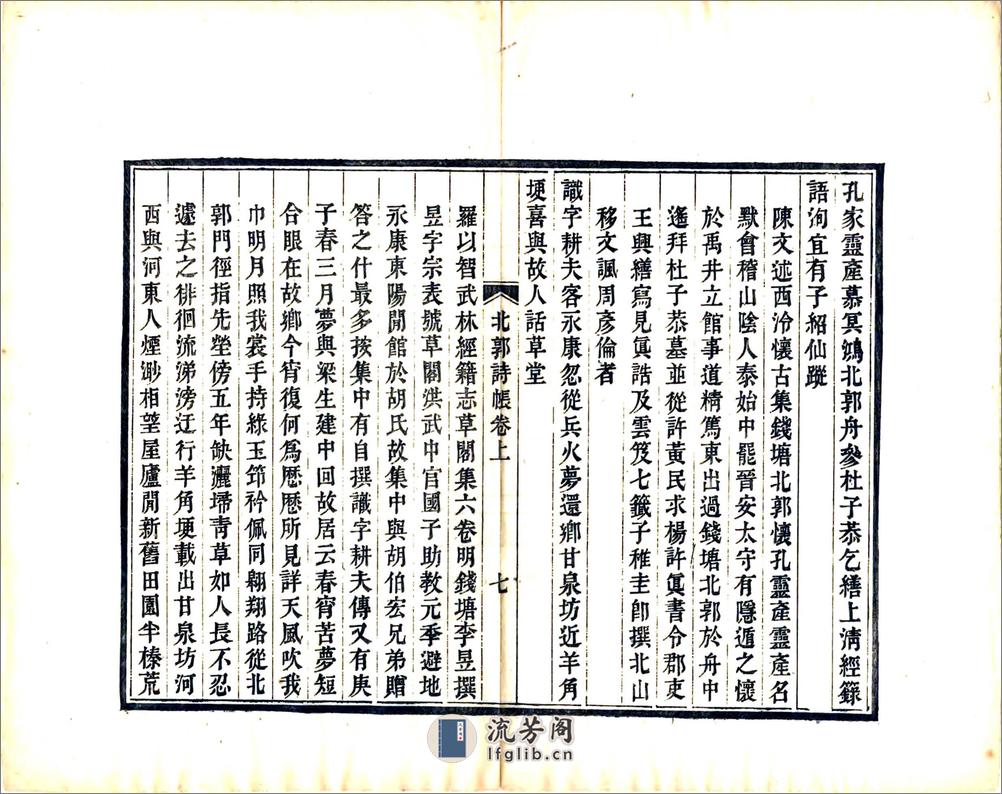 孔家靈產慕冥鴻北郭舟參杜子恭乞繕上淸經籙
語洵宜有子紹仙蹤
陳文述西泠懷古集錢塘北郭懷孔靈產靈產名
默會稽山陰人泰始中罷晉安太守有隱遁之懷
於禹井立館事道精篤東出過錢塘北郭於舟中
遙拜杜子恭墓並從許黃民求楊許眞書令郡吏
王興繕寫見眞誥及雲笈七籤子稚圭卽撰北山
移文諷周彥倫者
識字耕夫客永康忽從兵火夢還鄉甘泉坊近羊角
埂喜與故人話草堂
北郭詩帳卷上
七
羅以智武林經籍志草閣集六卷明錢塘李昱撰
昱字宗表號草閣洪武中官國子助教元季避地
永康東陽閒館於胡氏故集中與胡伯宏兄弟贈
答之什最多按集中有自撰識字耕夫傳又有庚
子春三月夢與梁生建中回故居云春宵苦夢短
合眼在故鄉今宵復何爲歷歷所見詳天風吹我
巾明月照我裳手持綠玉筇衿佩同翱翔路從北
郭門徑指先塋傍五年缺灑掃靑草如人長不忍
遽去之徘徊流涕滂迂行羊角埂載出甘泉坊河
西與河東人煙渺相望屋廬閒新舊田園半榛荒
流芳阁
lfglib.cn